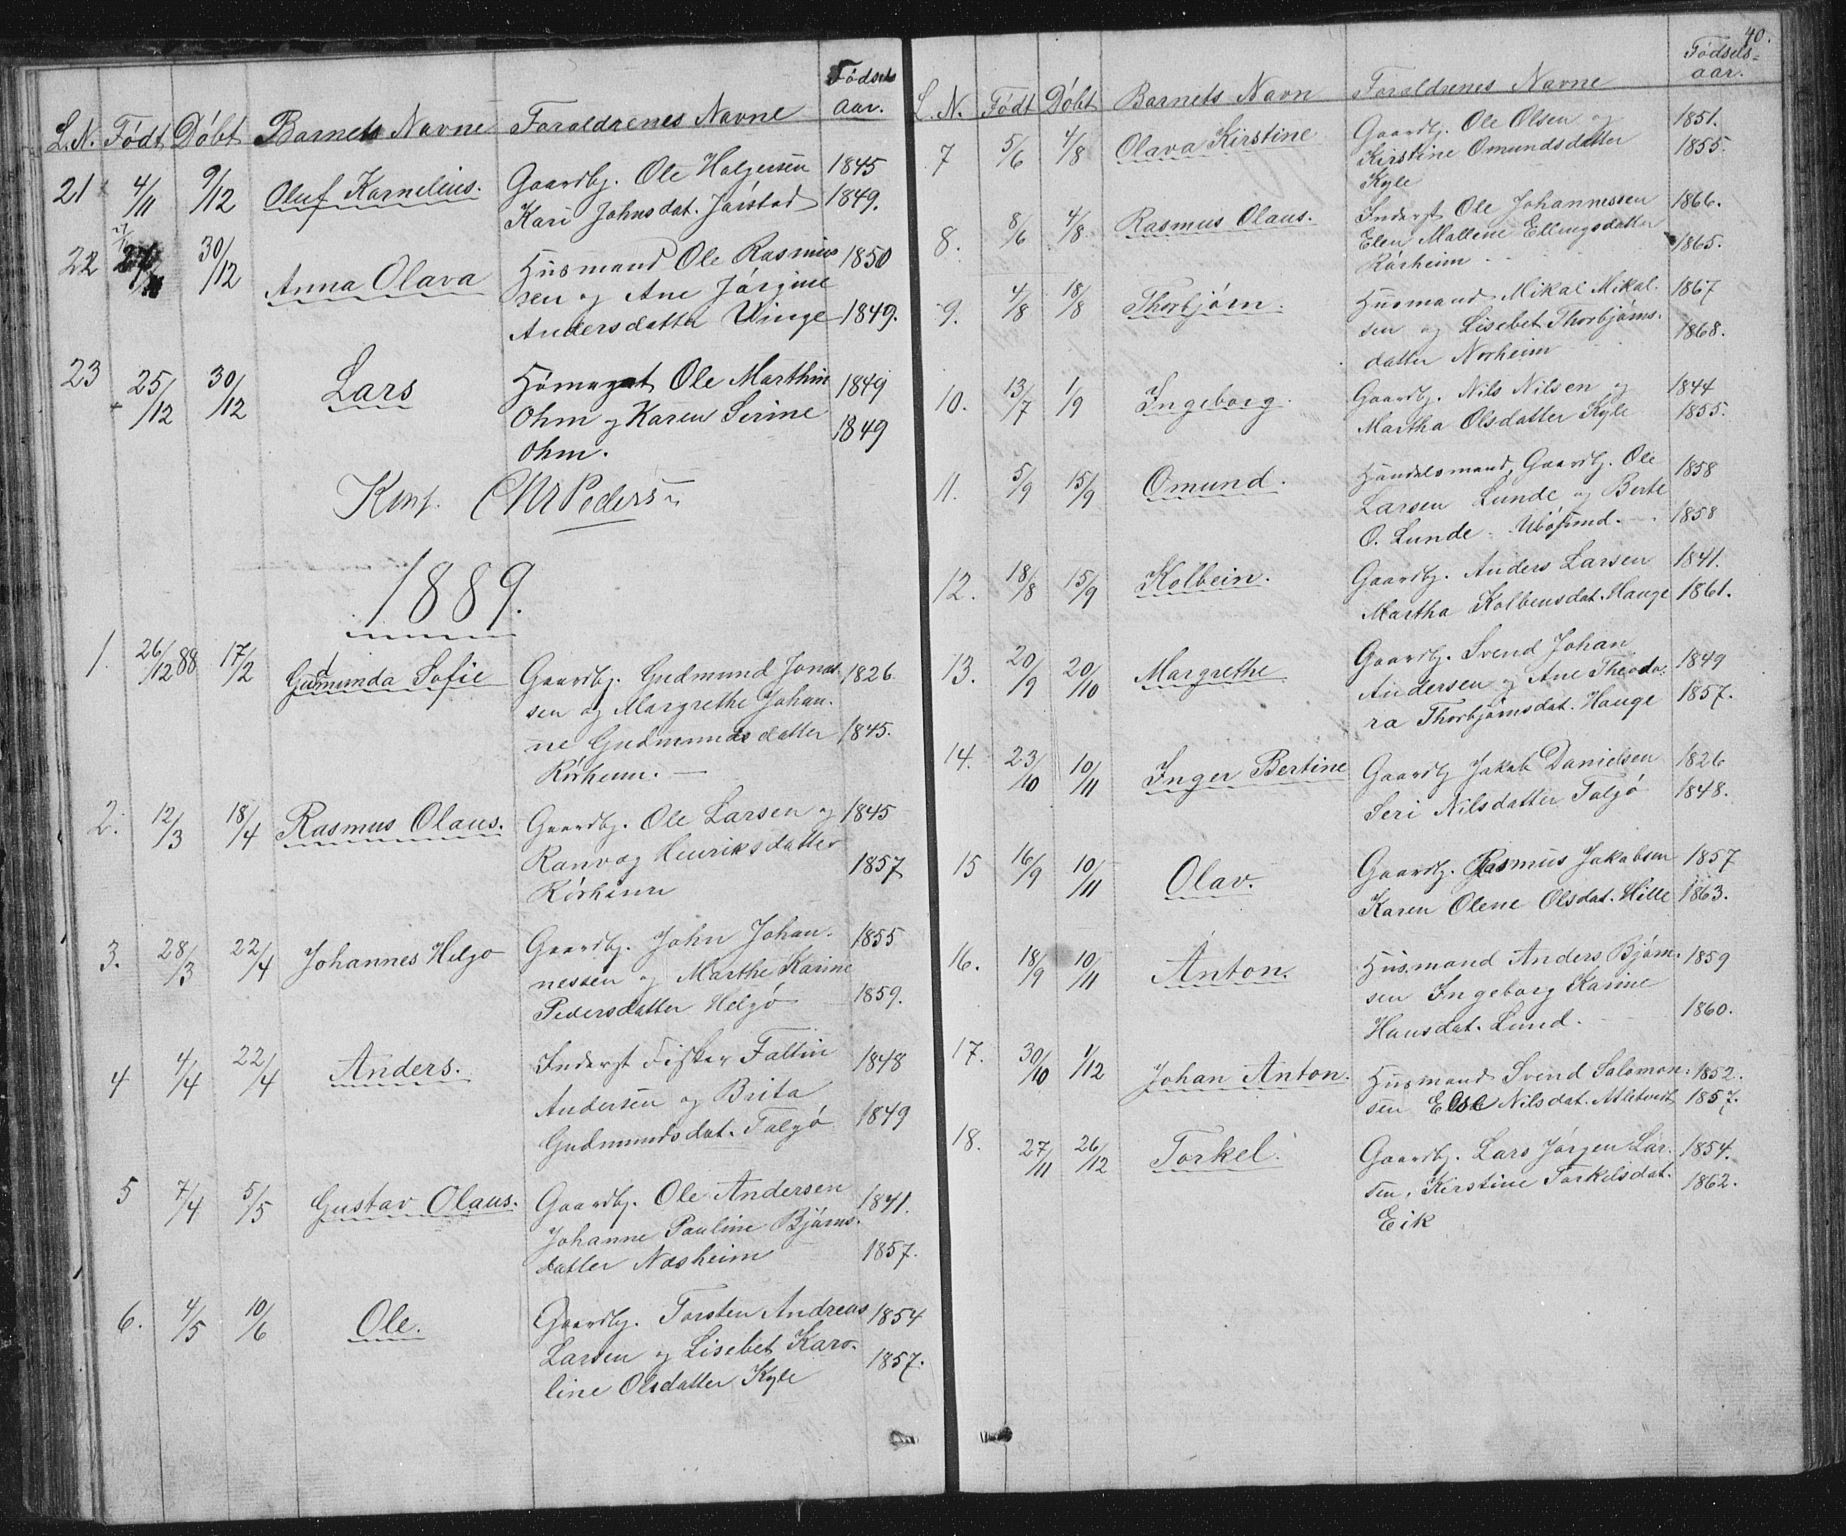 L.N. Født Døbt Barnets Navne Foraldrenes Navne Fødsels
aar.
21 4/11 9/12 Oluf Kornelius. Gaardbg. Ole Holgersen 1845
Kari Johnsdat. Jørstad 1849.
22 30/12 Anna Olava Husmand Ole Rasmus 1850
sen og Ane Jørgine
Andersdatter Vinge 1849.
23 25/12 30/12 Lars Ole Marthin 1849
Ohm og Karen Serine
Ohm. 1849
Konf. Chr Pedersen
1889.
1. 26/12 88 17/2 Gudmunda Sofie Gaardbg. Gudmund Jonas 1826
sen og Margrethe Johan-
ne Gudmundsdatter 1845.
Rørheim. —
2. 12/3 18/4 Rasmus Olaus. Gaardbg. Ole Larsen og 1845
Ranvæg Henriksdatter
Rørheim 1857
3. 28/3 22/4 Johannes Helgo Gaardbg. John Johan- 1855
nessen og Marthe Karine
Pedersdatter Helgø 1859.
4 4/4 22/4 Anders. Inderst Fisker Faltin 1848
Andersen og Brita
Gudmundsdat. Talgø 1849
5 7/4 5/5 Gustav Olaus. Gaardbg. Ole Andersen 1841.
Johanne Pauline Bjørns-
datter Nasheim 1857.
6. 4/5 10/6 Ole. Gaardbg. Torsten Andreas 1854
Larsen og Lisebet Karo-
line Olsdatter Kyle 1857.
40.
L. N. Født Døbt Barnets Navn Foraldrenes Navne Fødsels=
aar.
7 5/6 4/8 Olava Kirstine Gaardbg. Ole Olsen og 1851.
Kirstine Omundsdatter 1855.
Kyle
8. 8/6 4/8 Rasmus Olaus. Inderst Ole Johannessen 1866.
Elen Mallene Ellingsdatter
Rørheim 1865.
9. 4/8 18/8 Thorbjørn. Husmand Mikal Mikal- 1867
sen og Lisebet Thorbjørns-
datter Norheim 1868.
10. 13/7 1/9 Ingeborg. Gaardbg. Nils Nilsen og 1844
Martha Olsdatter Kyle 1855.
11. 5/9 15/9 Omund. Handelsmand, Gaardbg. Ole 1858
Larsen Lunde og Berte
O. Lunde 1858
12. 18/8 15/9 Kolbein. Gaardbg. Anders Larsen 1841.
Martha Kolbensdat. Hauge 1861.
13. 20/9 20/10 Margrethe Gaardbg. Svend Johan
Andersen og Ane Theodo- 1849
ra Thorbjørnsdat. Hauge 1857.
14. 23/10 10/11 Inger Bertine Gaardbg Jakob Danielsen 1826
Seri Nilsdatter Talgø 1848.
15 16/9 10/11 Olav. Gaardbg. Rasmus Jakobsen 1857
Karen Olene Olsdat. Hille 1863.
16. 18/9 10/11 Anton. Husmand Anders Bjørn- 1859
sen Ingeborg Karine
Hansdat. Lund. 1860.
17. 30/10 1/12 Johan Anton. Husmand Svend Salomon- 1852.
sen Else Nilsdat. 1857.
18. 27/11 26/12 Torkel. Gaardbg. Lars Jørgen Lar- 1854.
sen, Kerstine Torkelsdat. 1862.
Eik